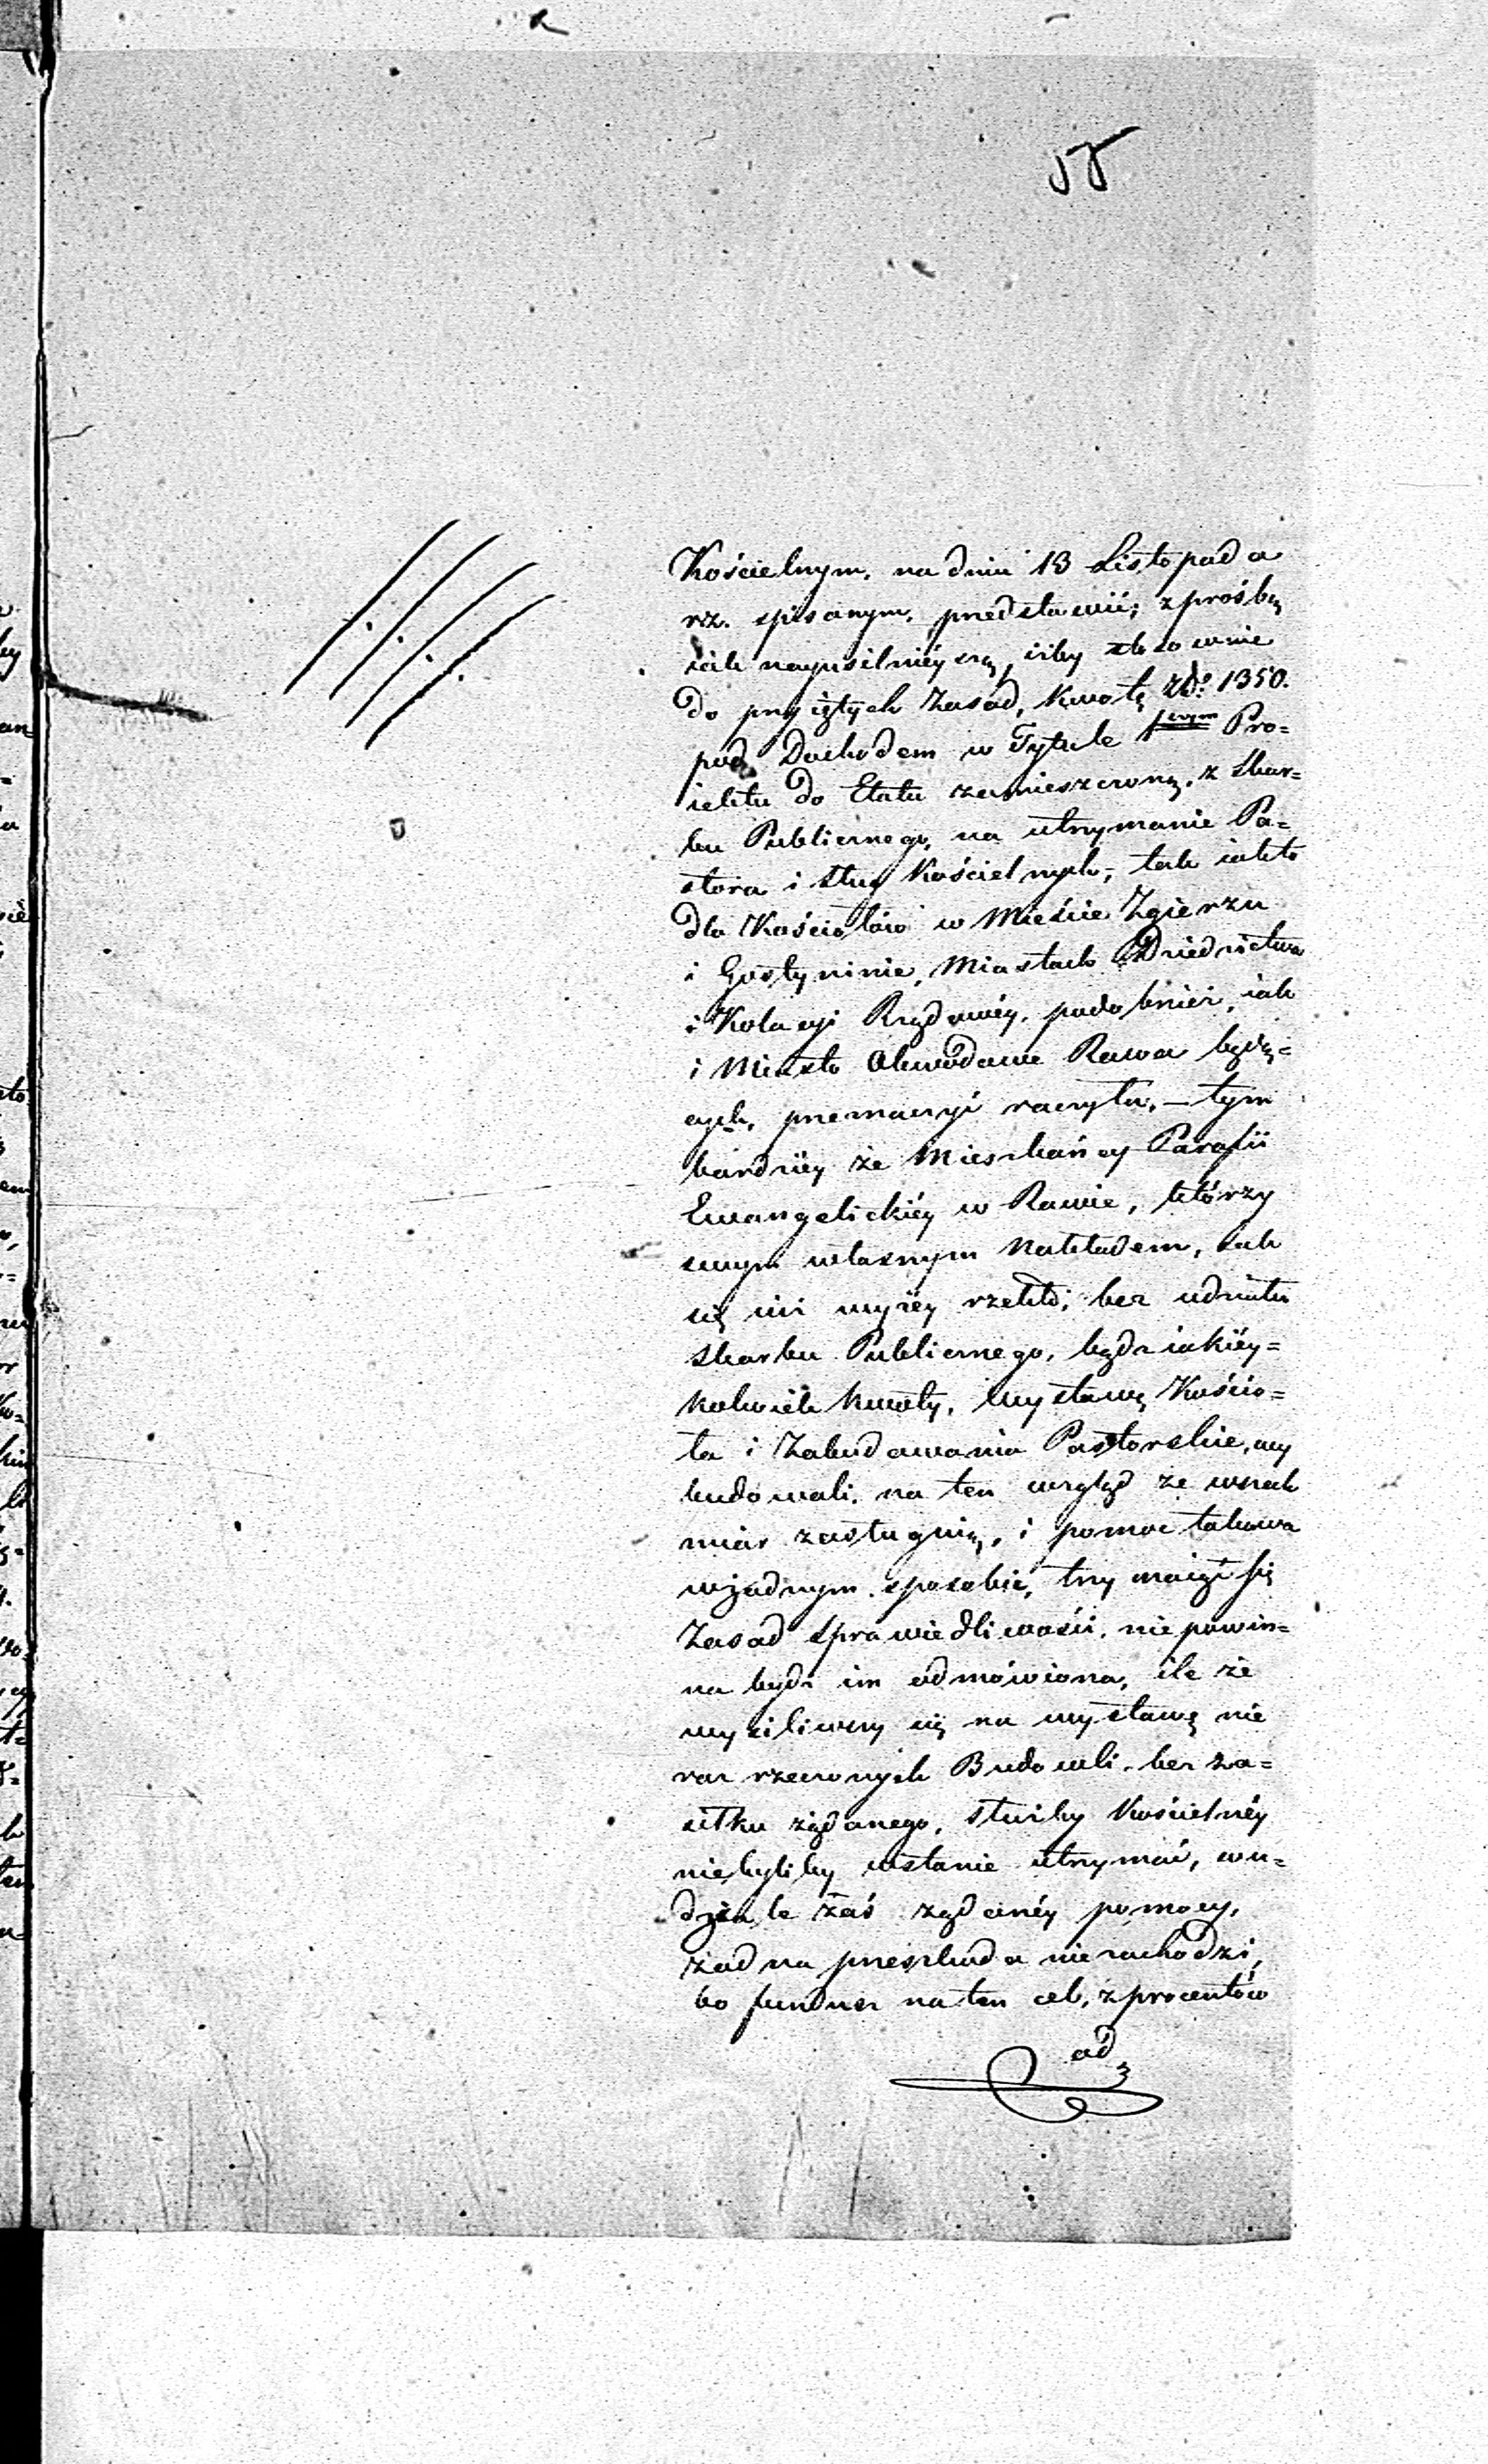 55
Kościelnym, na dniu 13 Listopada
rz. spisanym, przedstawić, z prośbą
iak nayusilnieyszą, iżby stosownie
do przyiętych Zasad, kwotę Złp. 1350.
pod Dochodem w Tytule 1szym Pro=
iektu do Etatu zamieszczoną, z Skar=
bu Publicznego, na utrzymanie Pa=
stora i sług Kościelnych, tak iak to
dla Kościołów w Mieście Zgierzu
i Gostyninie, Miastach Dziedzictwa
i Kolacyi Rządowéy, podobnież, iak
i Miasto Obwodowe Rawa będą=
cych, przeznaczyć raczyła, – tym
bardziéy że Mieszkańcy Parafii
Ewangelickiéy w Rawie, którzy
swym własnym Nakładem, iak
się iuż wyżéy rzekło; bez udziału
Skarbu Publicznego, bądź iakiéy=
kolwiek kwoty, wystawę Kościo=
ła i Zabudowania Pastorskie, wy
budowali, na ten wzgląd ze wszech
miar zasługuią, i pomoc takowa
w żadnym sposobie, trzymaiąc się
Zasad sprawiedliwości, nie powin=
na bydź im odmówiona, ile że
wysiliwszy się na wystawę nie
raz rzeczonych Budowli, bez za=
siłku żądanego, służby Kościelnéy
nie byliby wstanie utrzymać, w u=
dziale zaś żądanéy pomocy,
żadna przeszkoda nie zachodzi,
bo fundusz na ten cel, z procentów
od